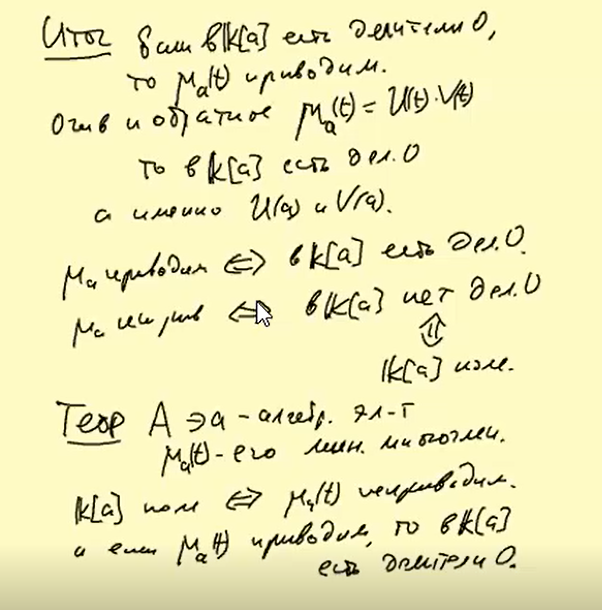 Итог Если в K[a] есть делители 0,
то μₐ(t) приводим.
Очев и обратное μₐ(t) = U(t)·V(t)
то в K[a] есть дел. 0
а именно U(a) и V(a).
μₐ приводим ⇔ в K[a] есть дел. 0.
μₐ неприв ⇔ в K[a] нет дел. 0
⇕
K[a] поле.
Теор A ∋ a - алгебр. эл-т
μₐ(t) - его мин. многочлен.
K[a] поле ⇔ μₐ(t) неприводим.
и если μₐ(t) приводим, то в K[a]
есть делители 0.